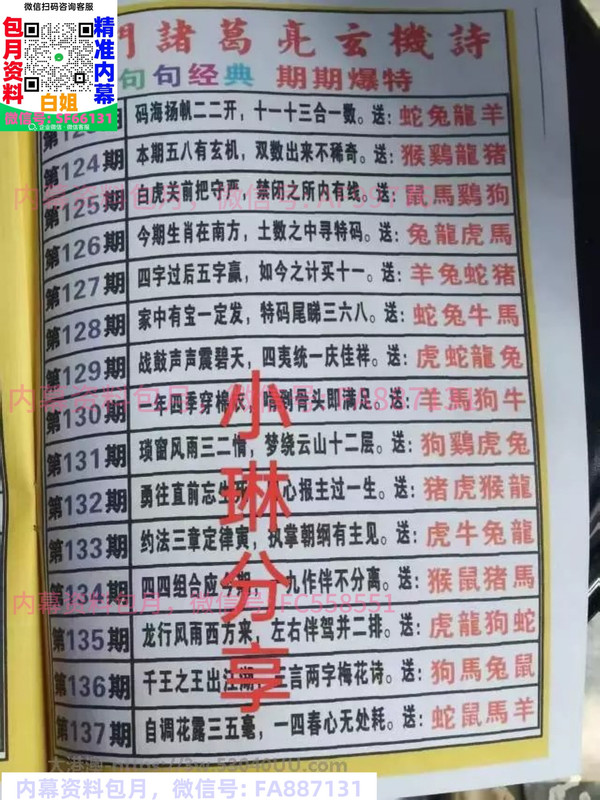 微信扫码咨询客服
包月资料
精准内幕
白姐
企业微信·微信客服
微信号: SF66131
門諸葛亮玄機詩
句句经典 期期爆特
码海扬帆二二开，十一十三合一数。送: 蛇兔龍羊
第124期 本期五八有玄机，双数出来不稀奇。送: 猴鷄龍豬
第125期 白虎关前把守严，禁闭之所内有线。送: 鼠馬鷄狗
第126期 今期生肖在南方，土数之中寻特码。送: 兔龍虎馬
第127期 四字过后五字赢，如今之计买十一。送: 羊兔蛇猪
第128期 家中有宝一定发，特码尾睇三六八。送: 蛇兔牛馬
第129期 战鼓声声震碧天，四夷统一庆佳祥。送: 虎蛇龍兔
第130期 一年四季穿棉衣，啃到骨头即满足。送: 羊馬狗牛
第131期 琐窗风雨三二情，梦绕云山十二层。送: 狗鷄虎兔
第132期 勇往直前忘生 心报主过一生。送: 猪虎猴龍
第133期 约法三章定律寅，执掌朝纲有主见。送: 虎牛兔龍
第134期 四四组合应今期，一九作伴不分离。送: 猴鼠猪馬
第135期 龙行风雨西方来，左右伴驾并二排。送: 虎龍狗蛇
第136期 千王之王出江湖，三言两字梅花诗。送: 狗馬兔鼠
第137期 自调花露三五毫，一四春心无处耗。送: 蛇鼠馬羊
小琳分享
内幕资料包月，微信号
内幕资料包月，微信号: FA887131
内幕资料包月，微信号: FC558551
内幕资料包月，微信号: FA887131